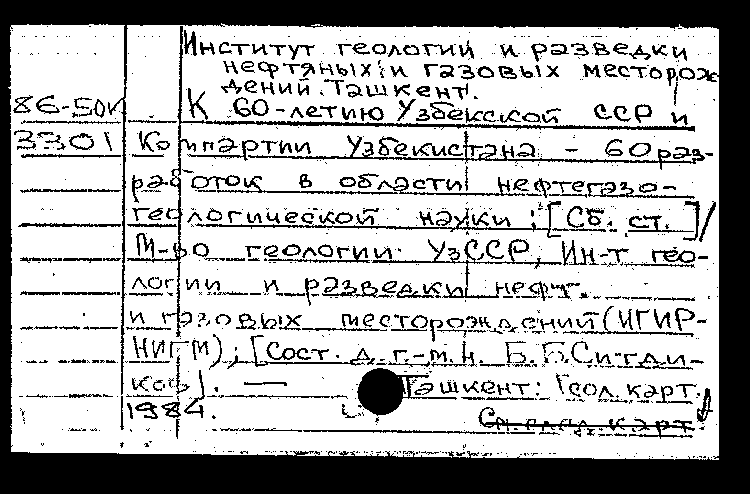 Институт геологии и разведки
нефтяных и газовых месторож
дений. Ташкент.
86-50К К 60-летию Узбекской ССР и
3301 Компартии Узбекистана - 60 раз-
работок в области нефтегазо-
геологической науки: [Сб. ст.]/
М-во геологии УзССР, Ин-т гео-
логии и разведки нефт.
и газовых месторождений (ИГИР-
НИГМ); [Сост. д. г.-м. н. Б. Б. Ситди-
ков]. — Ташкент: Геол. карт.
1984.
См. след. карт